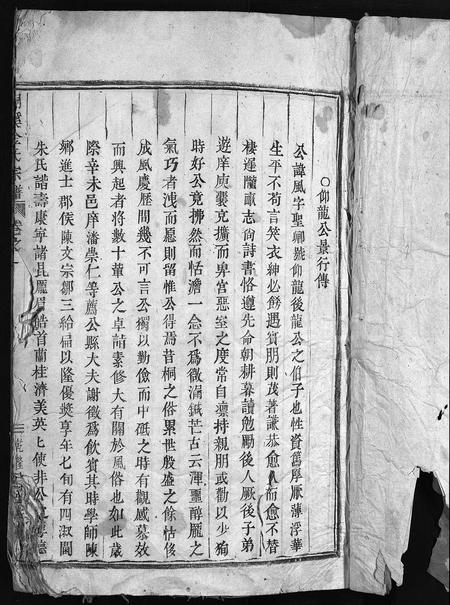 ○仰龍公景行傳
公諱風字聖卿號仰龍後龍公之伯子也性資篤厚厭薄浮華
生平不苟言笑衣紳必飭遇賓朋則茂著謙恭愈人而愈不替
棲遲隴畝志尚詩書恪遵先命朝耕暮讀勉勵後人厥後子弟
遊庠庚襄克擴而卑宮惡室之度常自凛持親朋或勸以少狥
時好公竟拂然而恬澹一念不爲微漏鍼芒古云渾噩醇龐之
氣巧者洩而愿則留惟公得焉昔桐之俗累世殷盛之餘怙侈
成風慶歷間幾不可言公獨以勤儉而中砥之時有觀感慕效
而興起者將數十輩公之卓詣素修大有關於風俗也如此歲
際辛未邑庠潘崇仁等薦公縣大夫謝徵爲飲賓其時學師陳
鄉進士郡侯陳文宗鄒三給匾以隆優奬享年七旬有四淑閫
朱氏諧壽康寧諸昆龐眉皓首蘭桂濟美英
使非公
宗譜
卷之
乾隆